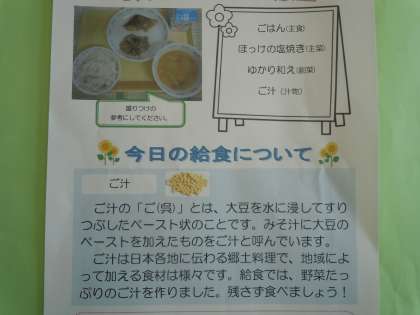 ごはん(主食)
ほっけの塩焼き(主菜)
ゆかり和え(副菜)
ご汁(汁物)
盛りつけの
参考にしてください。
今日の給食について
ご汁
ご汁の「ご(呉)」とは、大豆を水に浸してすり
つぶしたペースト状のことです。みそ汁に大豆の
ペーストを加えたものをご汁と呼んでいます。
ご汁は日本各地に伝わる郷土料理で、地域によ
って加える食材は様々です。給食では、野菜たっ
ぷりのご汁を作りました。残さず食べましょう！